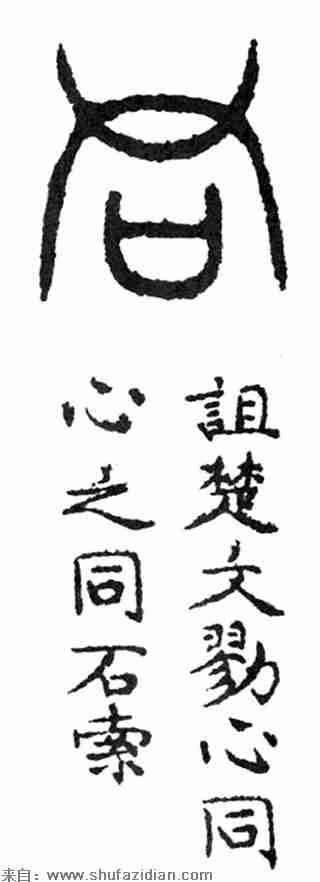 同
詛楚文勠心同
心之同石索
来自: www.shufazidian.com